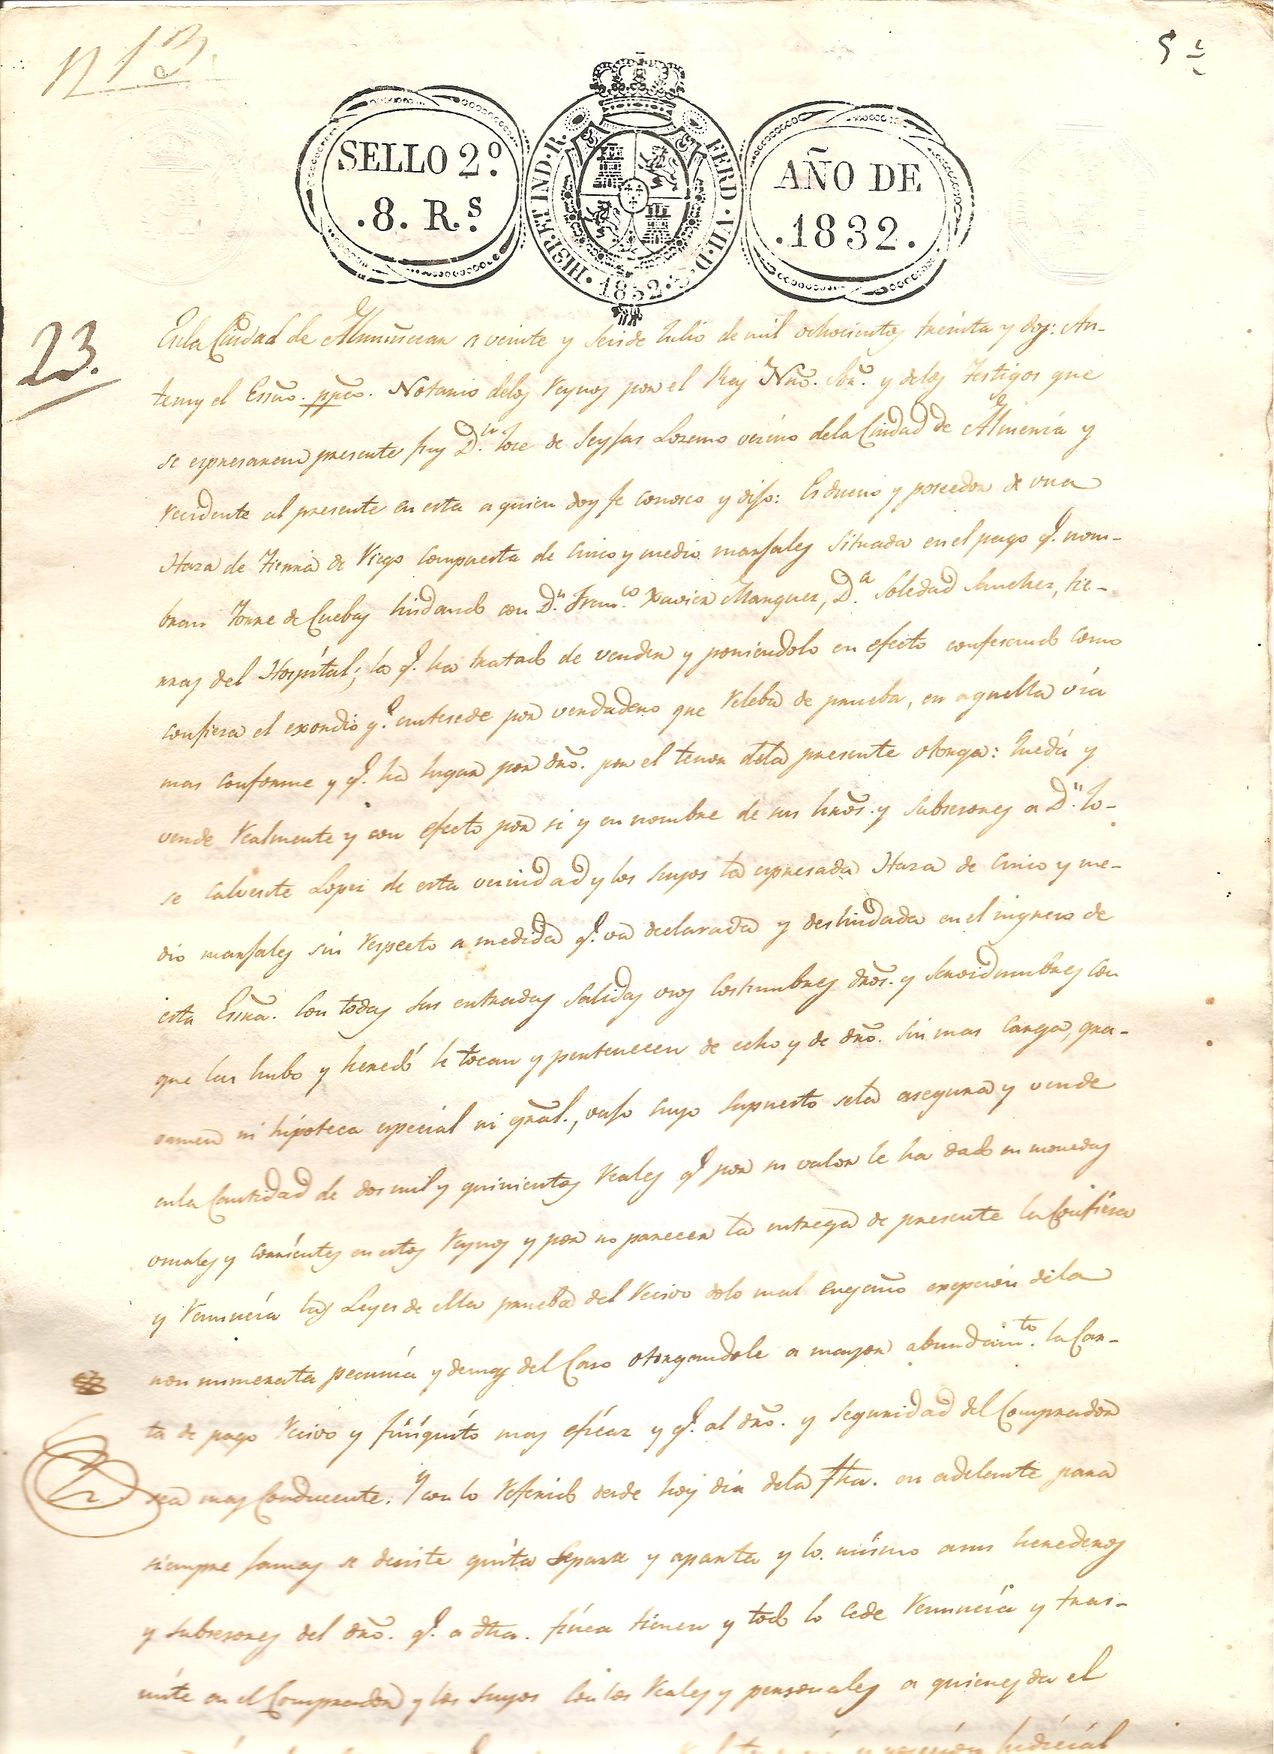 N 13.
5ª
SELLO 2º.
.8. R.s
HISP. ET IND. R. FERD. VII. D. G. 1832.
AÑO DE
.1832.
23.
En la Ciudad de Almuñecar a veinte y seis de Julio de mil ochocientos treinta y dos: An-
temy el Essno. ppco. Notario delos Reynos por el Rey Nño. Sñr. y delos testigos que
se expresaren presente fuy Dn. Jose de Seyjas Lozano vecino dela Ciudad de Almeria y
recidente al presente en esta a quien doy fe conosco y dijo: Es dueño y poseedor de una
Haza de tierra de Riego compuesta de cinco y medio marjales situada en el pago q. nom-
bran Torre de Cuebas lindando con Dn. Franco. Xavier Marquez, Da. Soledad Sanchez, tie-
rras del Hospital; la q. ha tratado de vender y poniendolo en efecto confesando como
confiesa el exordio q. antesede por verdadero que releba de prueba, en aquella via
mas conforme y q. ha lugar por dro. por el tenor dela presente otorga: Quedá y
vende realmente y con efecto por si y en nombre de sus hros. y subsesores a Dn. Jo-
se Calvente Lopez de esta vecindad y los suyos la expresada Haza de cinco y me-
dio marjales sin respecto a medida q. va declarada y deslindada en el ingreso de
esta Essra. Con todas sus entradas salidas usos costumbres dros. y servidumbres con
que las hubo y heredó le tocan y pertenecen de echo y de dro. sin mas carga, gra-
vamen ni hipoteca especial ni gral., vajo cuyo supuesto sela asegura y vende
enla Cantidad de dos mil y quinientos reales q. por su valor le ha dado en monedas
usuales y corrientes en estos Reynos y por no parecer la entrega de presente la Confiesa
y renuncia las Leyes de ella prueba del recivo dolo mal engaño exepcion dela
non numerata pecunia y demas del Caso otorgandole a mayor abundamto. la Car-
ta de pago recivo y finiquito mas eficaz y q. al dro. y seguridad del Comprador
sea mas Conducente. Y con lo referido desde hoy dia dela fha. en adelante para
siempre jamas se desiste quita separa y aparta y lo mismo asus herederos
y subsesores del dro. q. a dha. finca tienen y todo lo cede renuncia y tras-
mite en el Comprador y los suyos con los reales y personales a quienes da el
posesion Judicial